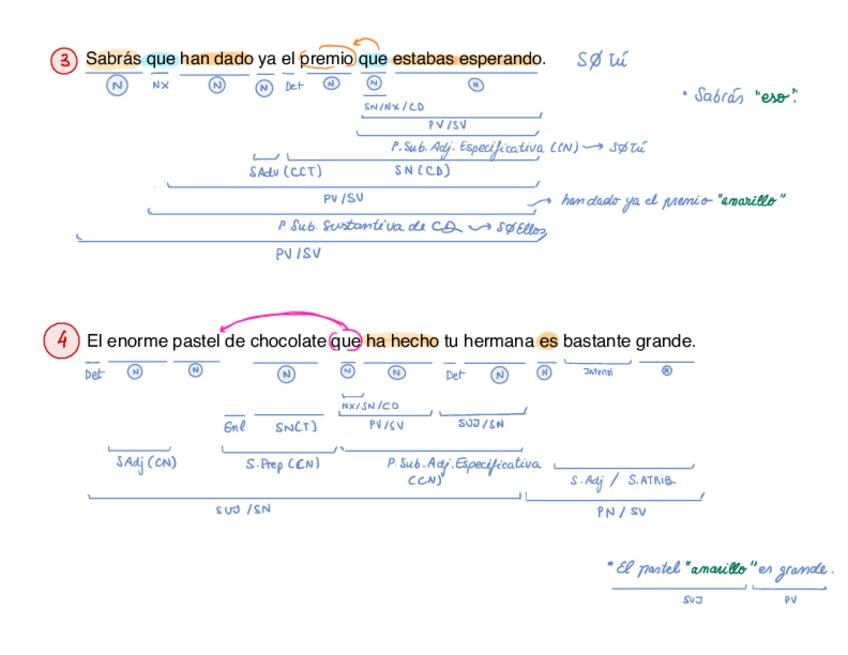 3 Sabrás que han dado ya el premio que estabas esperando. SØ tú
N NX N N Det N N N
• Sabrás "eso".
SN/NX/CD
PV/SV
P.Sub.Adj. Especificativa (CN) → SØ tú
SAdv (CCT) SN (CD)
PV/SV → han dado ya el premio "amarillo"
P. Sub. Sustantiva de CD → SØ Ellos
PV/SV
4 El enorme pastel de chocolate que ha hecho tu hermana es bastante grande.
Det N N N N N Det N N Intensi N
NX/SN/CD
Enl SN(T) PV/SV SUJ/SN
SAdj (CN) S.Prep (CN) P.Sub.Adj.Especificativa
(CN) S.Adj / S.ATRIB
SUJ /SN PN / SV
• El pastel "amarillo" es grande.
SUJ PV